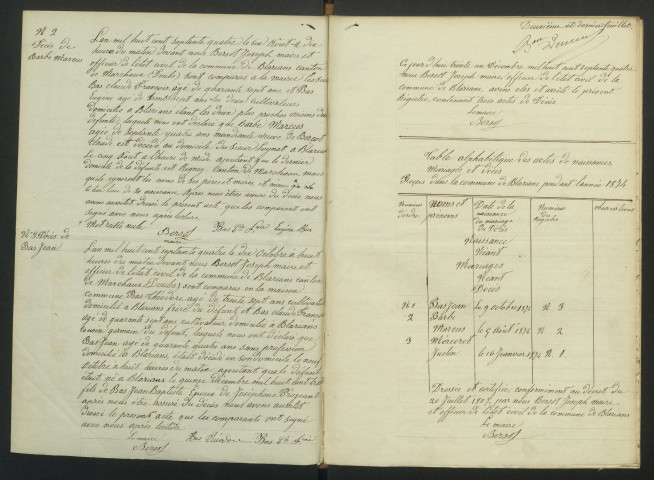 N. 2
Décès de
Barbe Marcus
L'an mil huit cent septante quatre le six Août à dix
heures du matin devant nous Bersot Joseph maire et
officier de l'état civil de la commune de Blarians canton
de Marchaux (Doubs) sont comparus à la mairie les sieurs
Bas Claude François age de quarante sept ans et Bas
Eugène age de ans les deux cultivateurs
domiciliés à Blarians étant les deux plus proches voisins du
défunt, lesquels nous ont déclaré que Barbe Marcus
agée de septante quatre ans mendiante veuve de
Claude est décédé au domicile du sieur à Blarians
Le cinq Août à l'heure de midi ajoutant que le dernier
domicile de la défunte est Rigney canton de Marchaux, mais
qu'ils ignorent les noms de ses père et mère, et même qu'elle
a eu lieu de sa naissance. Après nous être assuré du décès nous
avons aussitôt dressé le présent acte, que les comparants ont
signé avec nous après lecture
Mot rayé nul. Bas Eugène Bas
Bersot
maire
N. 3 Décès de
Bas Jean
L'an mil huit cent septante quatre le dix Octobre à huit
heures du matin devant nous Bersot Joseph maire et
officier de l'état civil de la commune de Blarians canton
de Marchaux (Doubs) sont comparus en la maison
commune Bas Théodore age de trente sept ans cultivateur
domicilié à Blarians frère du défunt, et Bas Claude François
age de quarante sept ans cultivateur domicilié à Blarians
cousin germain du défunt, lesquels nous ont déclaré que
Bas Jean age de quarante quatre ans sans profession
domicilié à Blarians, était décédé en son domicile le neuf
Octobre à huit heures du matin ajoutant que le défunt
était né à Blarians le quinze Décembre mil huit cent
fils de Bas Jean Baptiste Epoux de Josephine
après nous être assuré du décès nous avons aussitôt
dressé le présent acte, que les comparants ont signé
avec nous après lecture
Le maire Bas Théodore Bas
Bersot
Deuxième et dernier feuillet
Cejourd'hui trente un Décembre mil huit cent septante quatre
nous Bersot Joseph maire, officier de l'état civil de la
commune de Blarians, avons clos et arrêté le présent
Registre, contenant trois actes de Décès
Le maire
Bersot
Table alphabétique des actes de naissances
Mariages et Décès
Reçus dans la commune de Blarians pendant l'année 1874
Numéros d'ordre Noms et prénoms Date de la naissance du mariage du Décès Numéros du Registre Observations
Naissance
Néant
Mariages
Néant
Décès
N. 1 Bas Jean Le 9 octobre 1874 N. 3
2 Barbe
Marcus Le 5 Août 1874 N. 2
3
Justin Le 16 Janvier 1874 N. 1.
Dressée et certifiée, conformément au décret du
20 Juillet 1807, par nous Bersot Joseph maire
et officier de l'état civil de la commune de Blarians
Le maire
Bersot